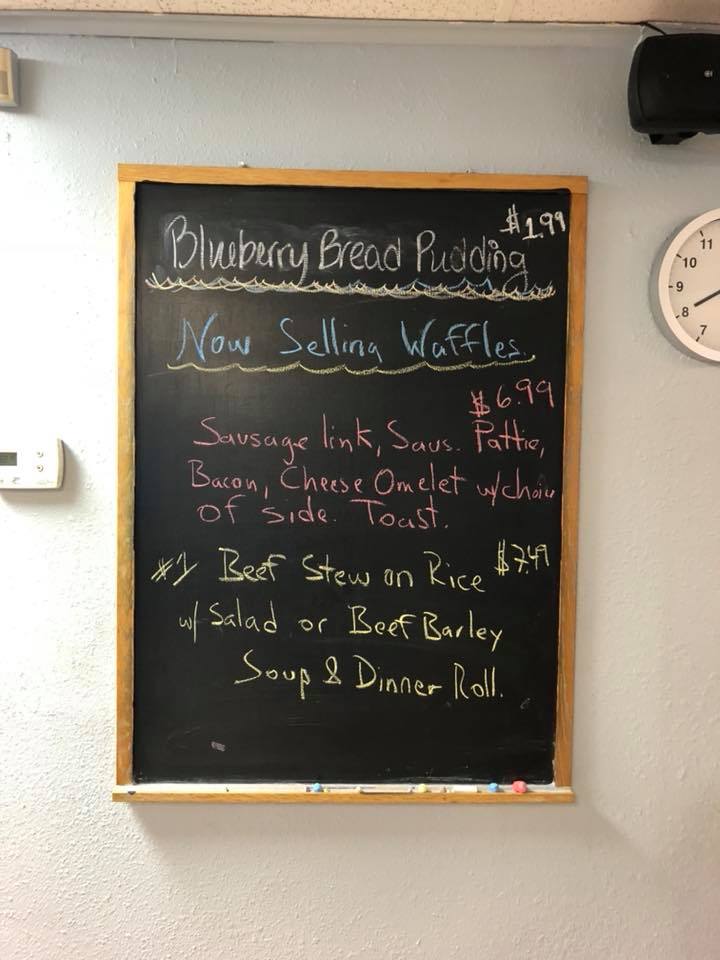 $1.99
Blueberry Bread Pudding
Now Selling Waffles.
$6.99
Sausage link, Saus. Pattie,
Bacon, Cheese Omelet w/choice
of side. Toast.
#1 Beef Stew on Rice $7.49
w/ Salad or Beef Barley
Soup & Dinner Roll.
11
10
9
8
7